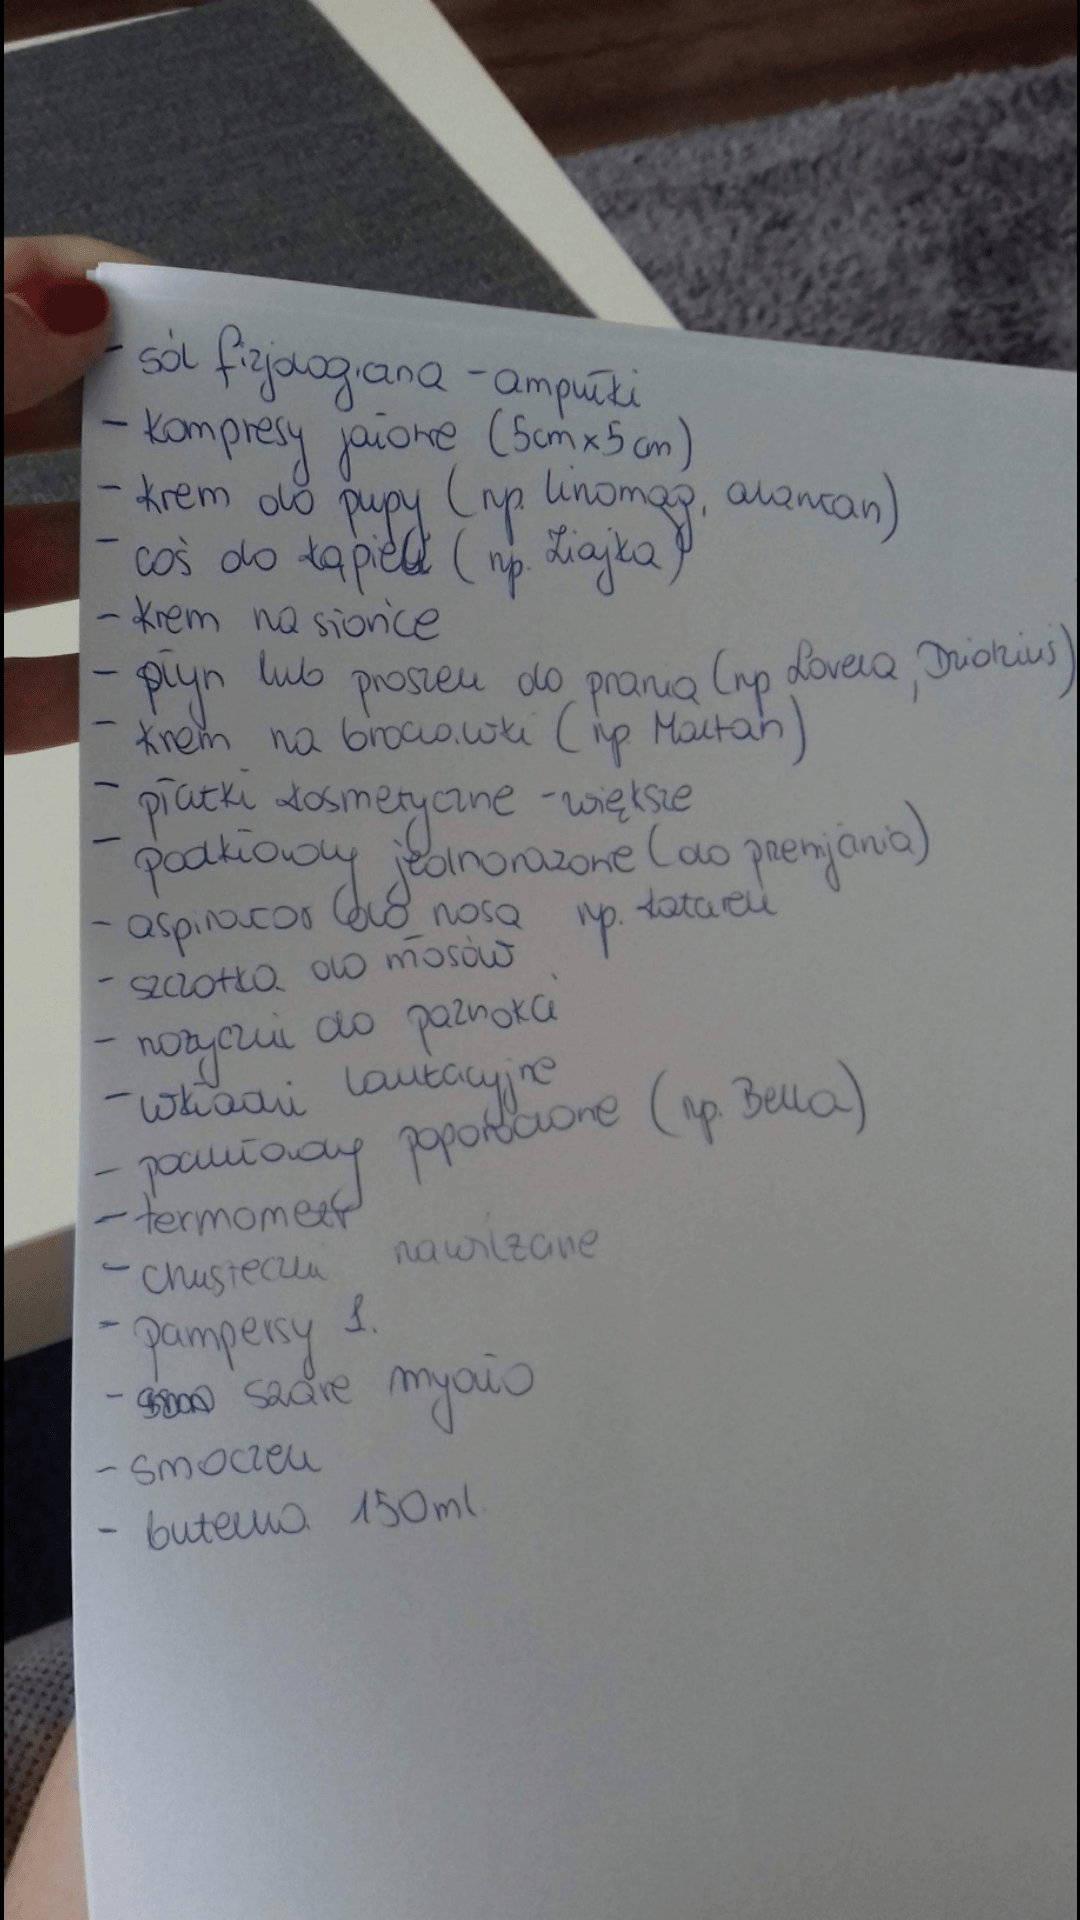 - sól fizjologiczna - ampułki
- kompresy jałowe (5cm x 5cm)
- krem do pupy (np. linomag, alantan)
- coś do kąpieli (np. Ziajka)
- krem na słońce
- płyn lub proszek do prania (np Lovela, Dzidziuś)
- krem na brodawki (np. Maltan)
- płatki kosmetyczne - większe
- podkłady jednorazowe (do przewijania)
- aspirator do nosa np. katarek
- szczotka do włosów
- nożyczki do paznokci
- wkładki laktacyjne
- podkłady poporodowe (np. Bella)
- termometr
- chusteczki nawilżane
- pampersy 1.
- szare mydło
- smoczek
- butelka 150ml.